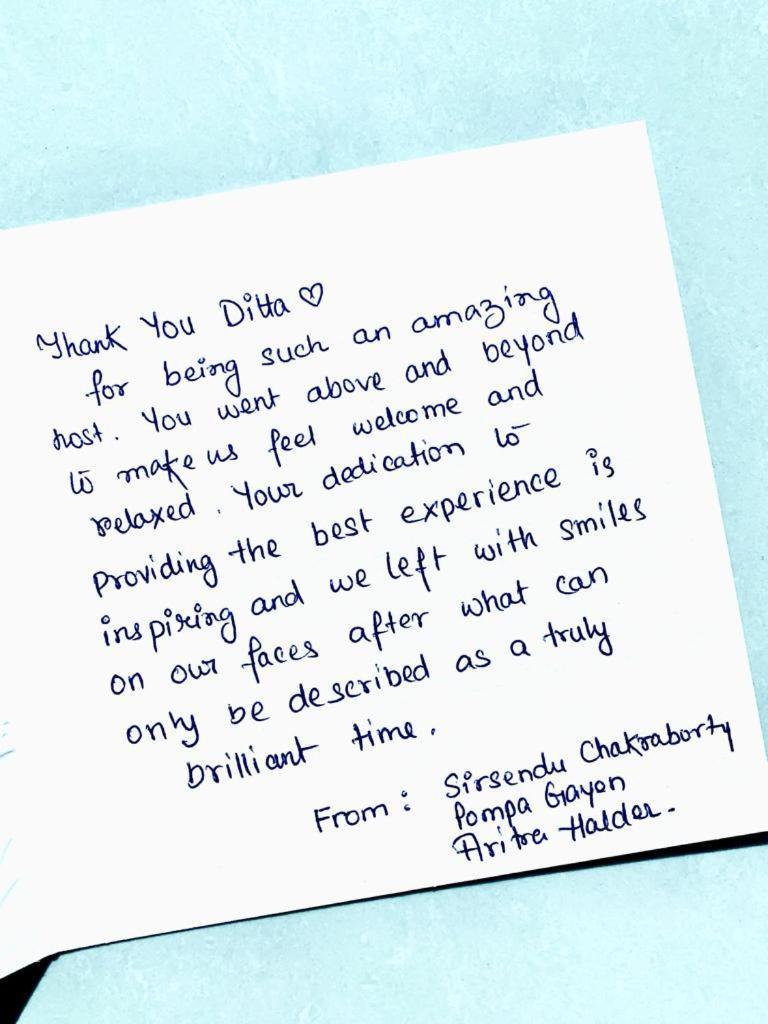 Thank You Ditta ♡
for being such an amazing
host. You went above and beyond
to make us feel welcome and
relaxed. Your dedication to
Providing the best experience is
inspiring and we left with smiles
on our faces after what can
only be described as a truly
brilliant time.
From: Sirsendu Chakraborty
Pompa Gayen
Aritra Halder.